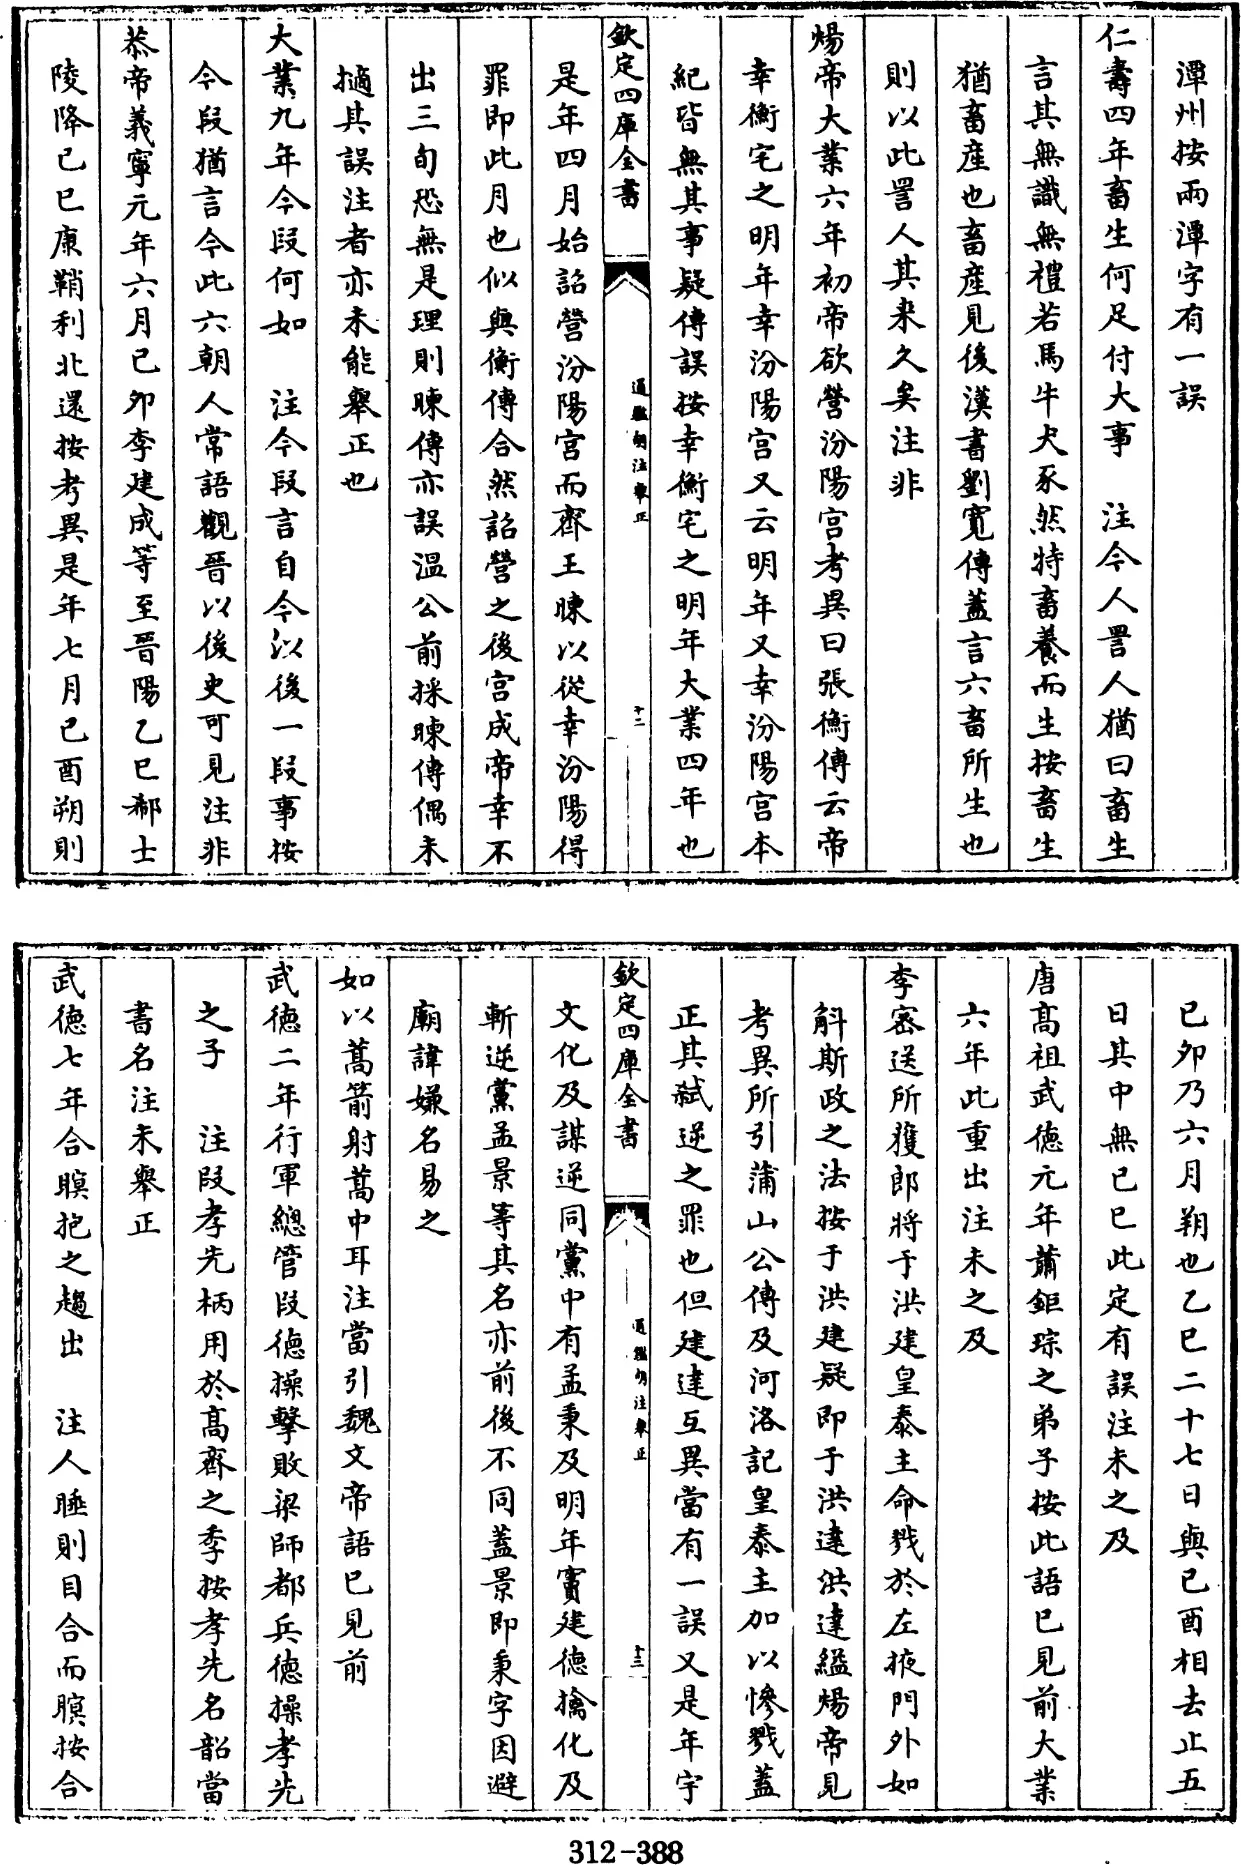 潭州按兩潭字有一誤
仁壽四年畜生何足付大事　注今人詈人猶曰畜生
言其無識無禮若馬牛犬豕然特畜養而生按畜生
猶畜産也畜産見後漢書劉寛傳蓋言六畜所生也
則以此詈人其来久矣注非
煬帝大業六年初帝欲營汾陽宮考異曰張衡傳云帝
幸衡宅之明年幸汾陽宮又云明年又幸汾陽宮本
紀皆無其事疑傳誤按幸衡宅之明年大業四年也
欽定四庫全書
通鑑胡注舉正
十二
是年四月始詔營汾陽宮而齊王暕以從幸汾陽得
罪即此月也似與衡傳合然詔營之後宮成帝幸不
出三旬恐無是理則暕傳亦誤温公前採暕傳偶未
擿其誤注者亦未能舉正也
大業九年今段何如　注今段言自今以後一段事按
今段猶言今此六朝人常語觀晉以後史可見注非
恭帝義寧元年六月已卯李建成等至晉陽乙巳郝士
陵降已巳康鞘利北還按考異是年七月已酉朔則
已卯乃六月朔也乙巳二十七日與已酉相去止五
日其中無已巳此定有誤注未之及
唐髙祖武徳元年蕭鉅琮之弟子按此語已見前大業
六年此重出注未之及
李密送所獲郎將于洪建皇泰主命戮於左掖門外如
斛斯政之法按于洪建疑即于洪達洪達縊煬帝見
考異所引蒲山公傳及河洛記皇泰主加以慘戮蓋
正其弑逆之罪也但建達互異當有一誤又是年宇
欽定四庫全書
通鑑胡注舉正
十三
文化及謀逆同黨中有孟秉及明年竇建徳擒化及
斬逆黨孟景等其名亦前後不同蓋景即秉字因避
廟諱嫌名易之
如以蒿箭射蒿中耳注當引魏文帝語已見前
武徳二年行軍總管段徳操擊敗梁師都兵徳操孝先
之子　注段孝先柄用於髙齊之季按孝先名韶當
書名注未舉正
武徳七年合瞑抱之趨出　注人睡則目合而瞑按合
312-388